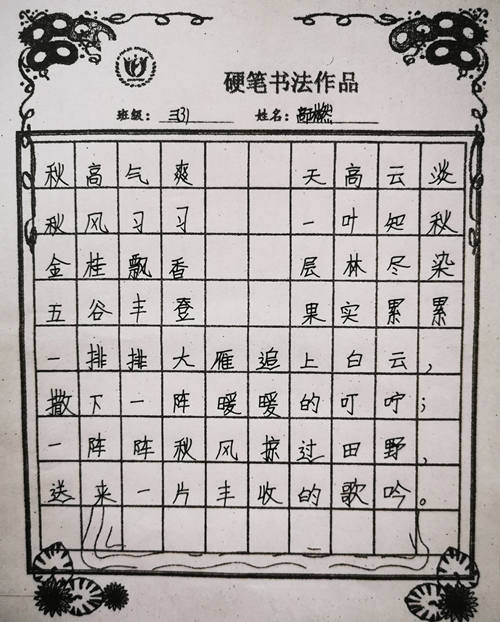 硬笔书法作品
班级： 三(3) 姓名：
秋高气爽 天高云淡
秋风习习 一叶知秋
金桂飘香 层林尽染
五谷丰登 果实累累
一排排大雁追上白云，
撒下一阵暖暖的叮咛；
一阵阵秋风掠过田野，
送来一片丰收的歌吟。